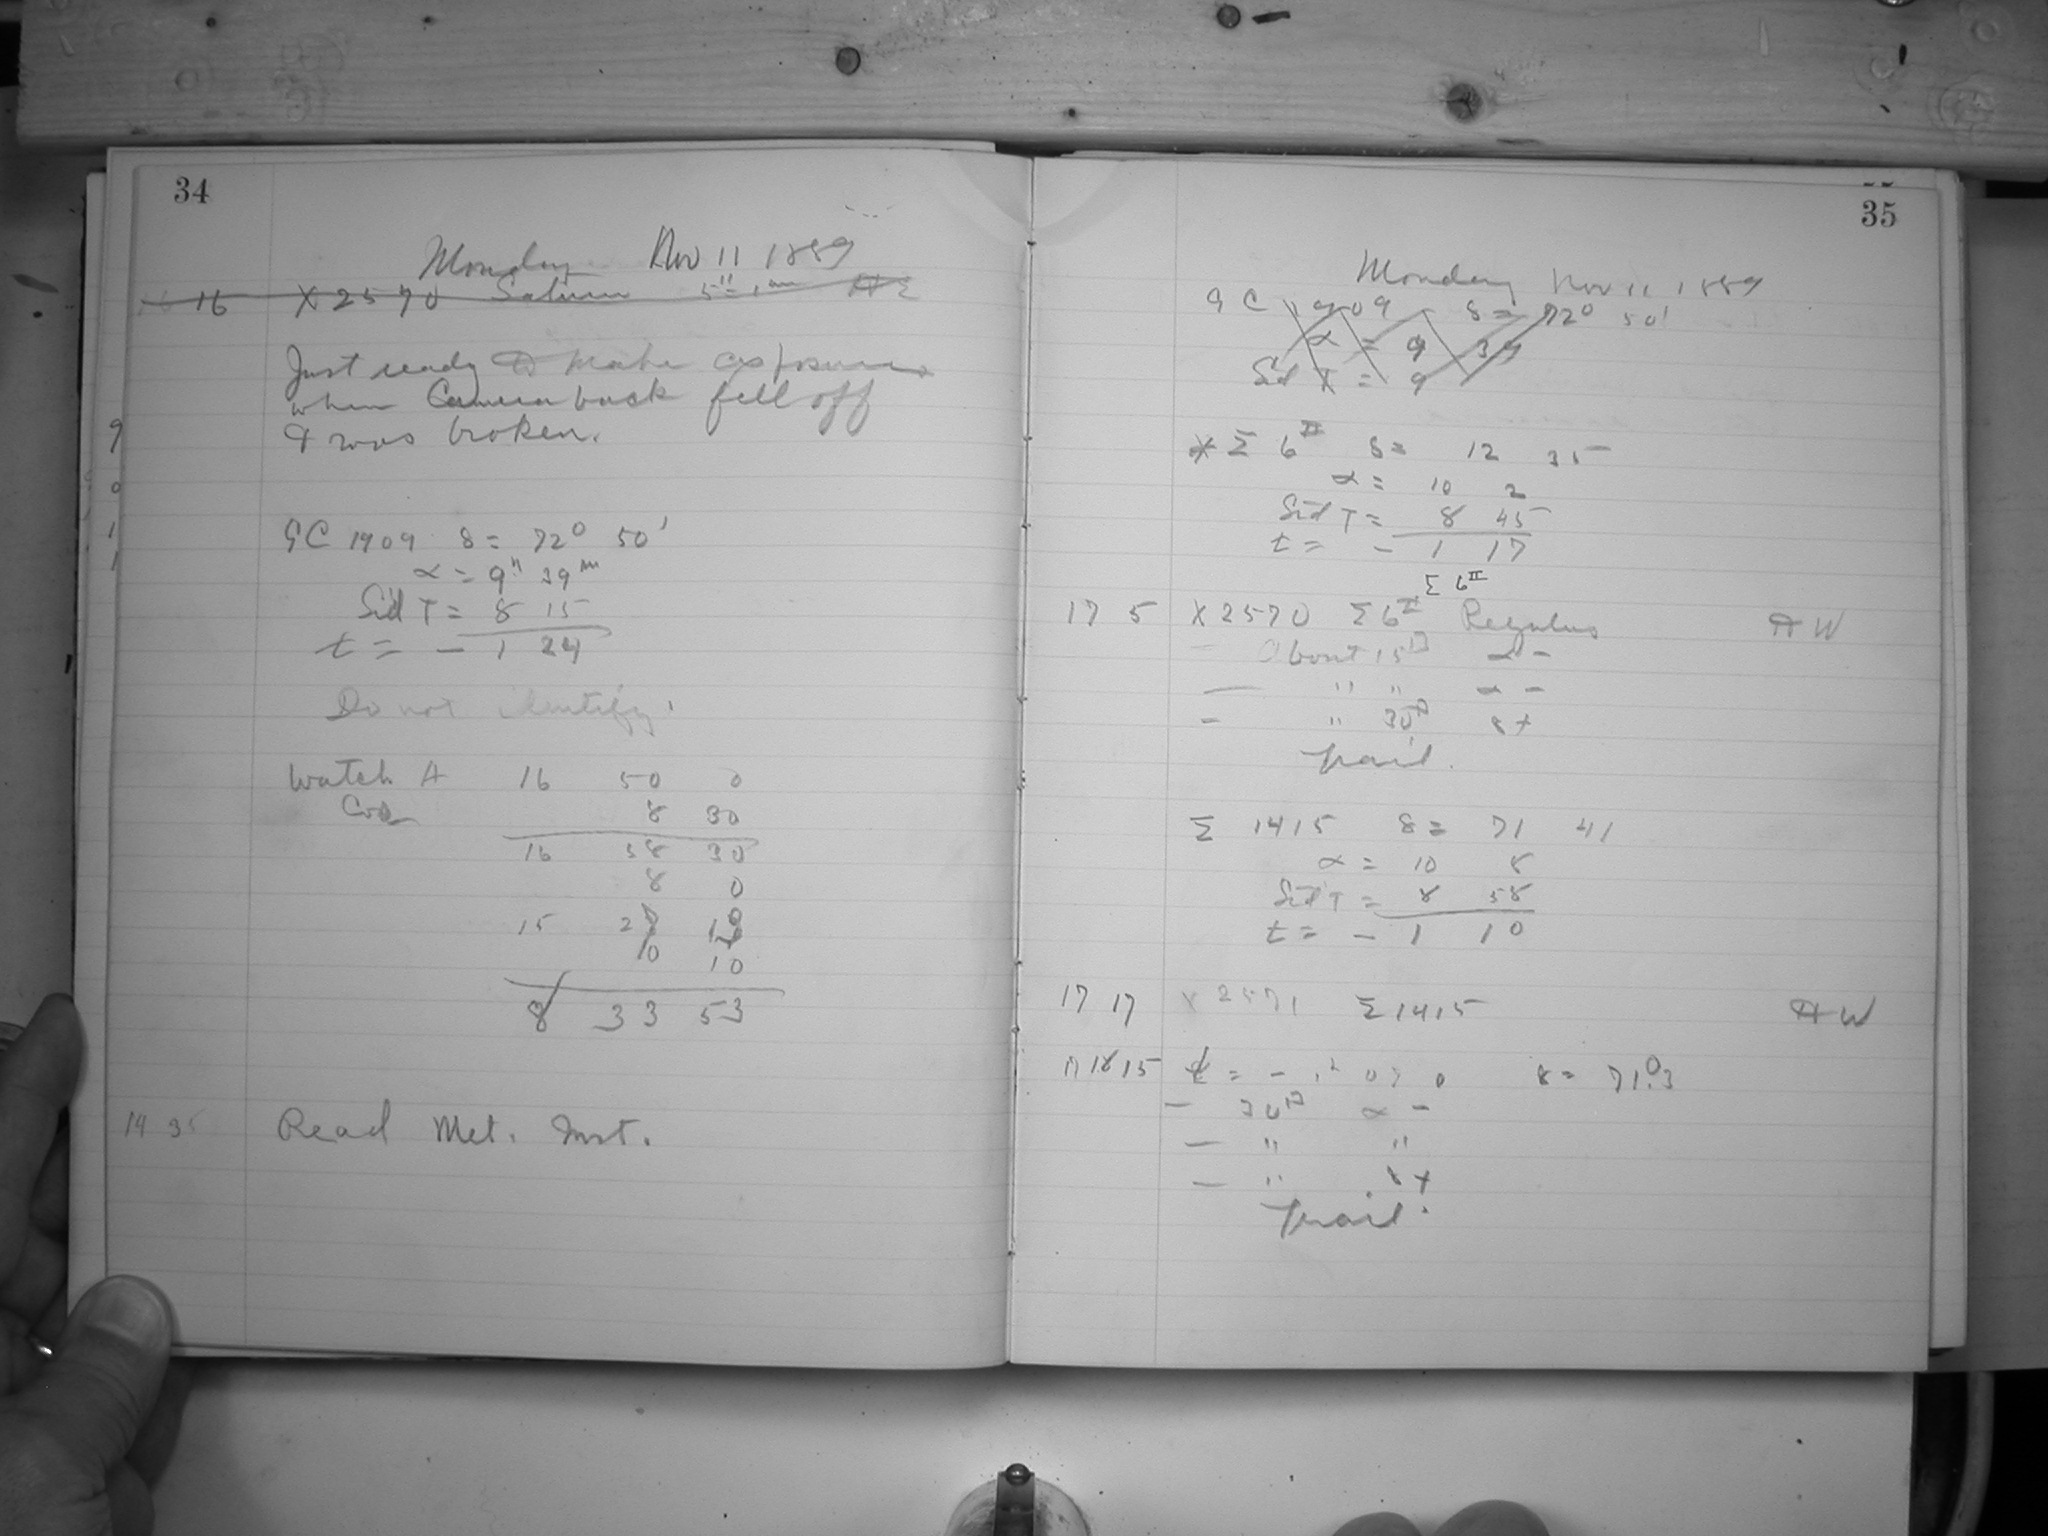 34
Monday Nov 11 1889
16 X 2570 Saturn
Just ready to make exposure
when Camera back fell off
& was broken.
GC 1909 δ = 72° 50'
α = 9h 39m
Sid T = 8 15
t = - 1 24
Do not identify.
Watch A 16 50 0
Cor 8 30
16 58 30
8 0
15 2
10 10
8 33 53
14 35 Read Met. Inst.
35
Monday Nov 11 1889
GC 1909 δ = 72° 50'
α = 9 39
Sid T = 9
* Σ 6 II δ = 12 35
α = 10 2
Sid T = 8 45
t = - 1 17
Σ 6 II
17 5 X 2570 Σ 6 I Regulus AW
- About 15 α -
- " " α -
- " 30 δ +
trail.
Σ 1415 δ = 71 41
α = 10 8
Sid T = 8 58
t = - 1 10
17 17 X 2571 Σ 1415 AW
17 18 15 t = - 1h 07 0 δ = 71°.3
- 30 α -
- " "
- " δ +
Trail.